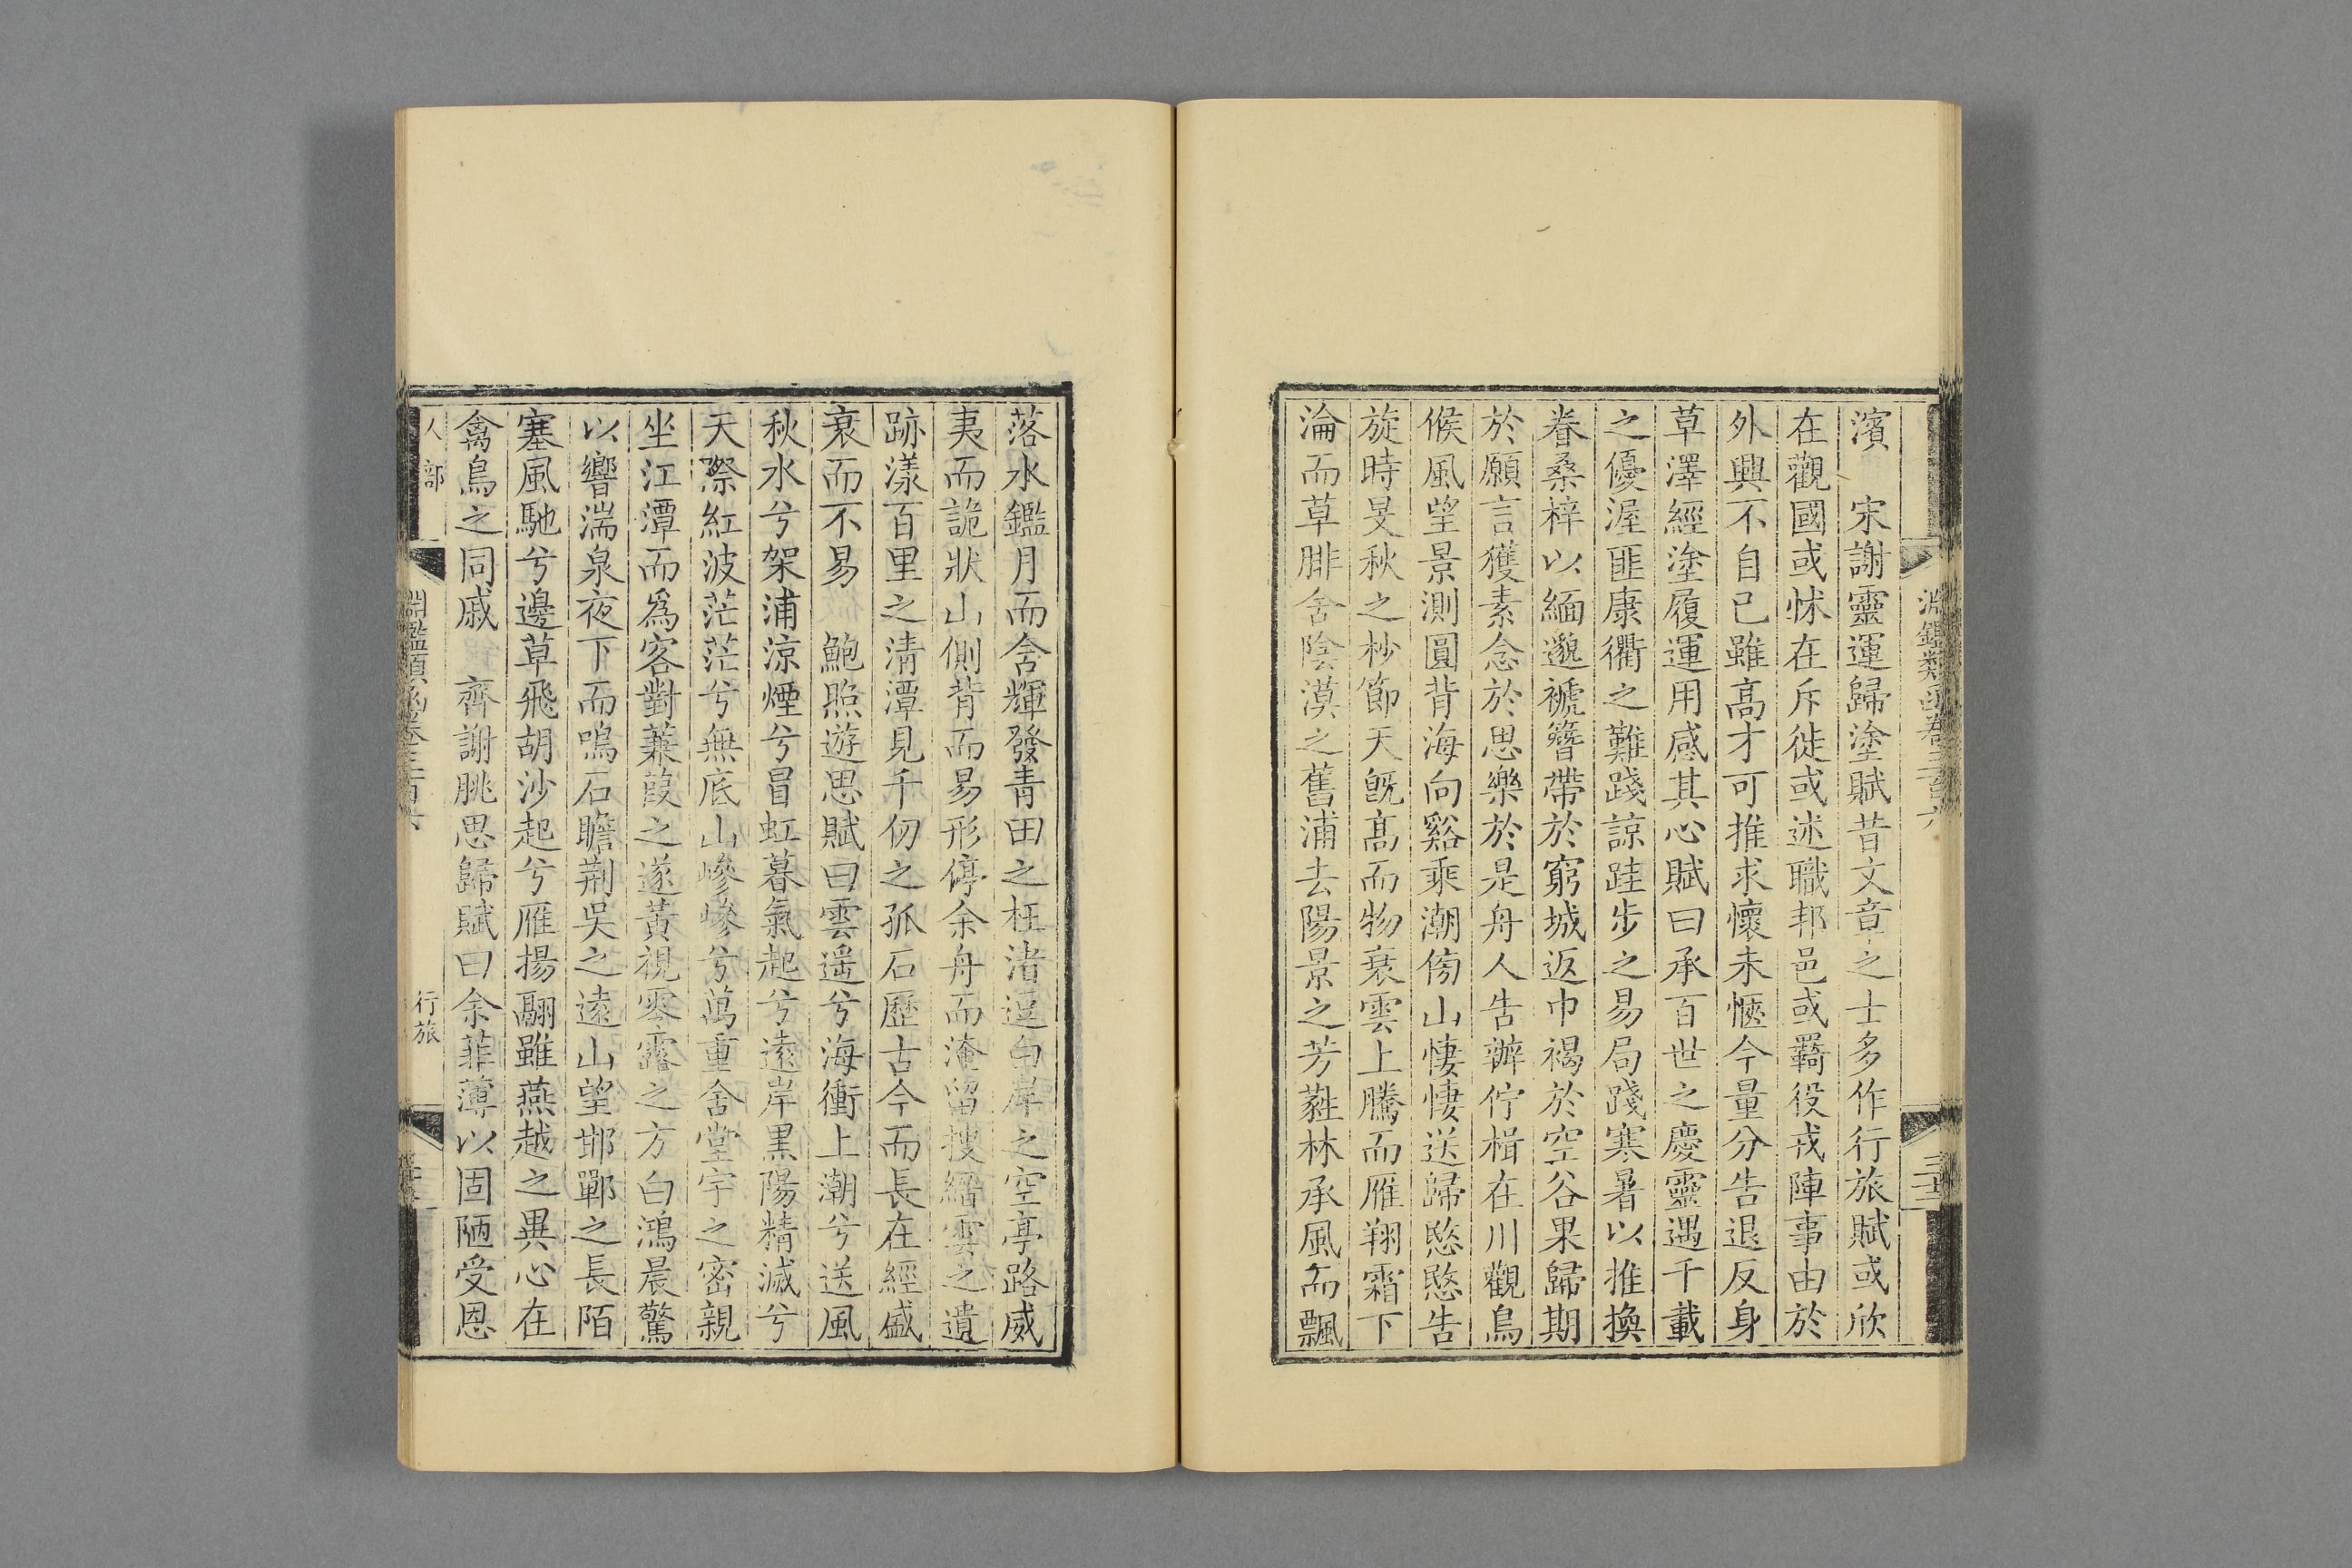 濱　宋謝靈運歸塗賦昔文章之士多作行旅賦或欣
在觀國或怵在斥徙或述職邦邑或羇役戎陣事由於
外興不自己雖高才可推求懷未愜今量分告退反身
草澤經塗履運用感其心賦曰承百世之慶靈遇千載
之優渥匪康衢之難踐諒跬步之易局踐寒暑以推換
眷桑梓以緬邈褫簪帶於窮城返巾褐於空谷果歸期
於願言獲素念於思樂於是舟人告辦佇楫在川觀鳥
候風望景測圓背海向谿乘潮傍山悽悽送歸愍愍告
旋時旻秋之杪節天旣高而物衰雲上騰而雁翔霜下
淪而草腓舍陰漠之舊浦去陽景之芳蕤林承風而飄
落水鑑月而含輝發青田之枉渚逗白岸之空亭路威
夷而詭狀山側背而易形停余舟而淹留搜縉雲之遺
跡漾百里之清潭見千仞之孤石歷古今而長在經盛
衰而不易　鮑照遊思賦曰雲遥兮海衝上潮兮送風
秋水兮架浦涼煙兮冒虹暮氣起兮遠岸黒陽精滅兮
天際紅波茫茫兮無底山嵾嵾兮萬重舍堂宇之密親
坐江潭而爲客對蒹葭之遂黃視零露之方白鴻晨驚
以響湍泉夜下而鳴石瞻荆吳之遠山望邯鄲之長陌
塞風馳兮邊草飛胡沙起兮雁揚翮雖燕越之異心在
禽鳥之同戚　齊謝朓思歸賦曰余菲薄以固陋受恩
人部
淵鑑類函卷三百六
行旅